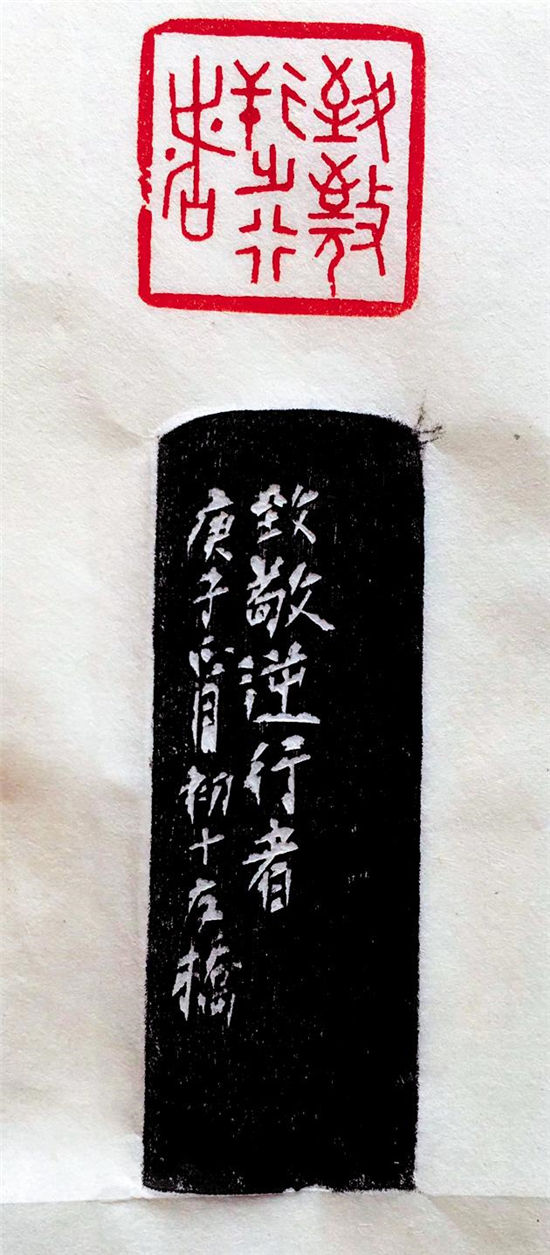 致敬
逆行
者
致敬逆行者
庚子正月初十左橋